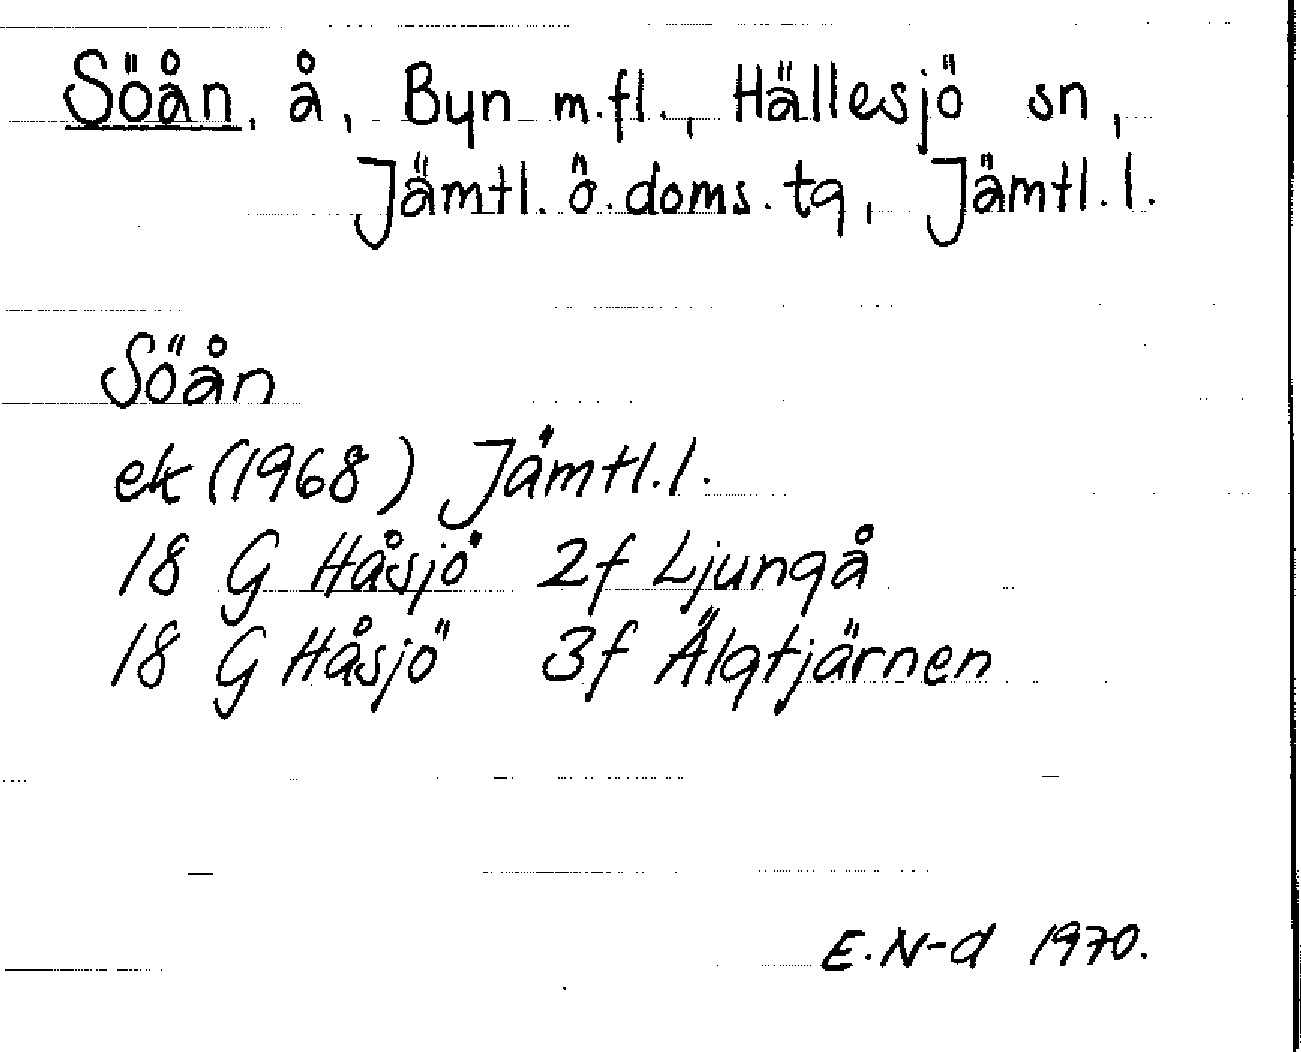 Söån, å, Byn m.fl., Hällesjö sn,
Jämtl. ö. doms. tg, Jämtl. l.
Söån
ek (1968) Jämtl. l.
18 G Håsjö 2f Ljungå
18 G Håsjö 3f Älgtjärnen
E. N-d 1970.